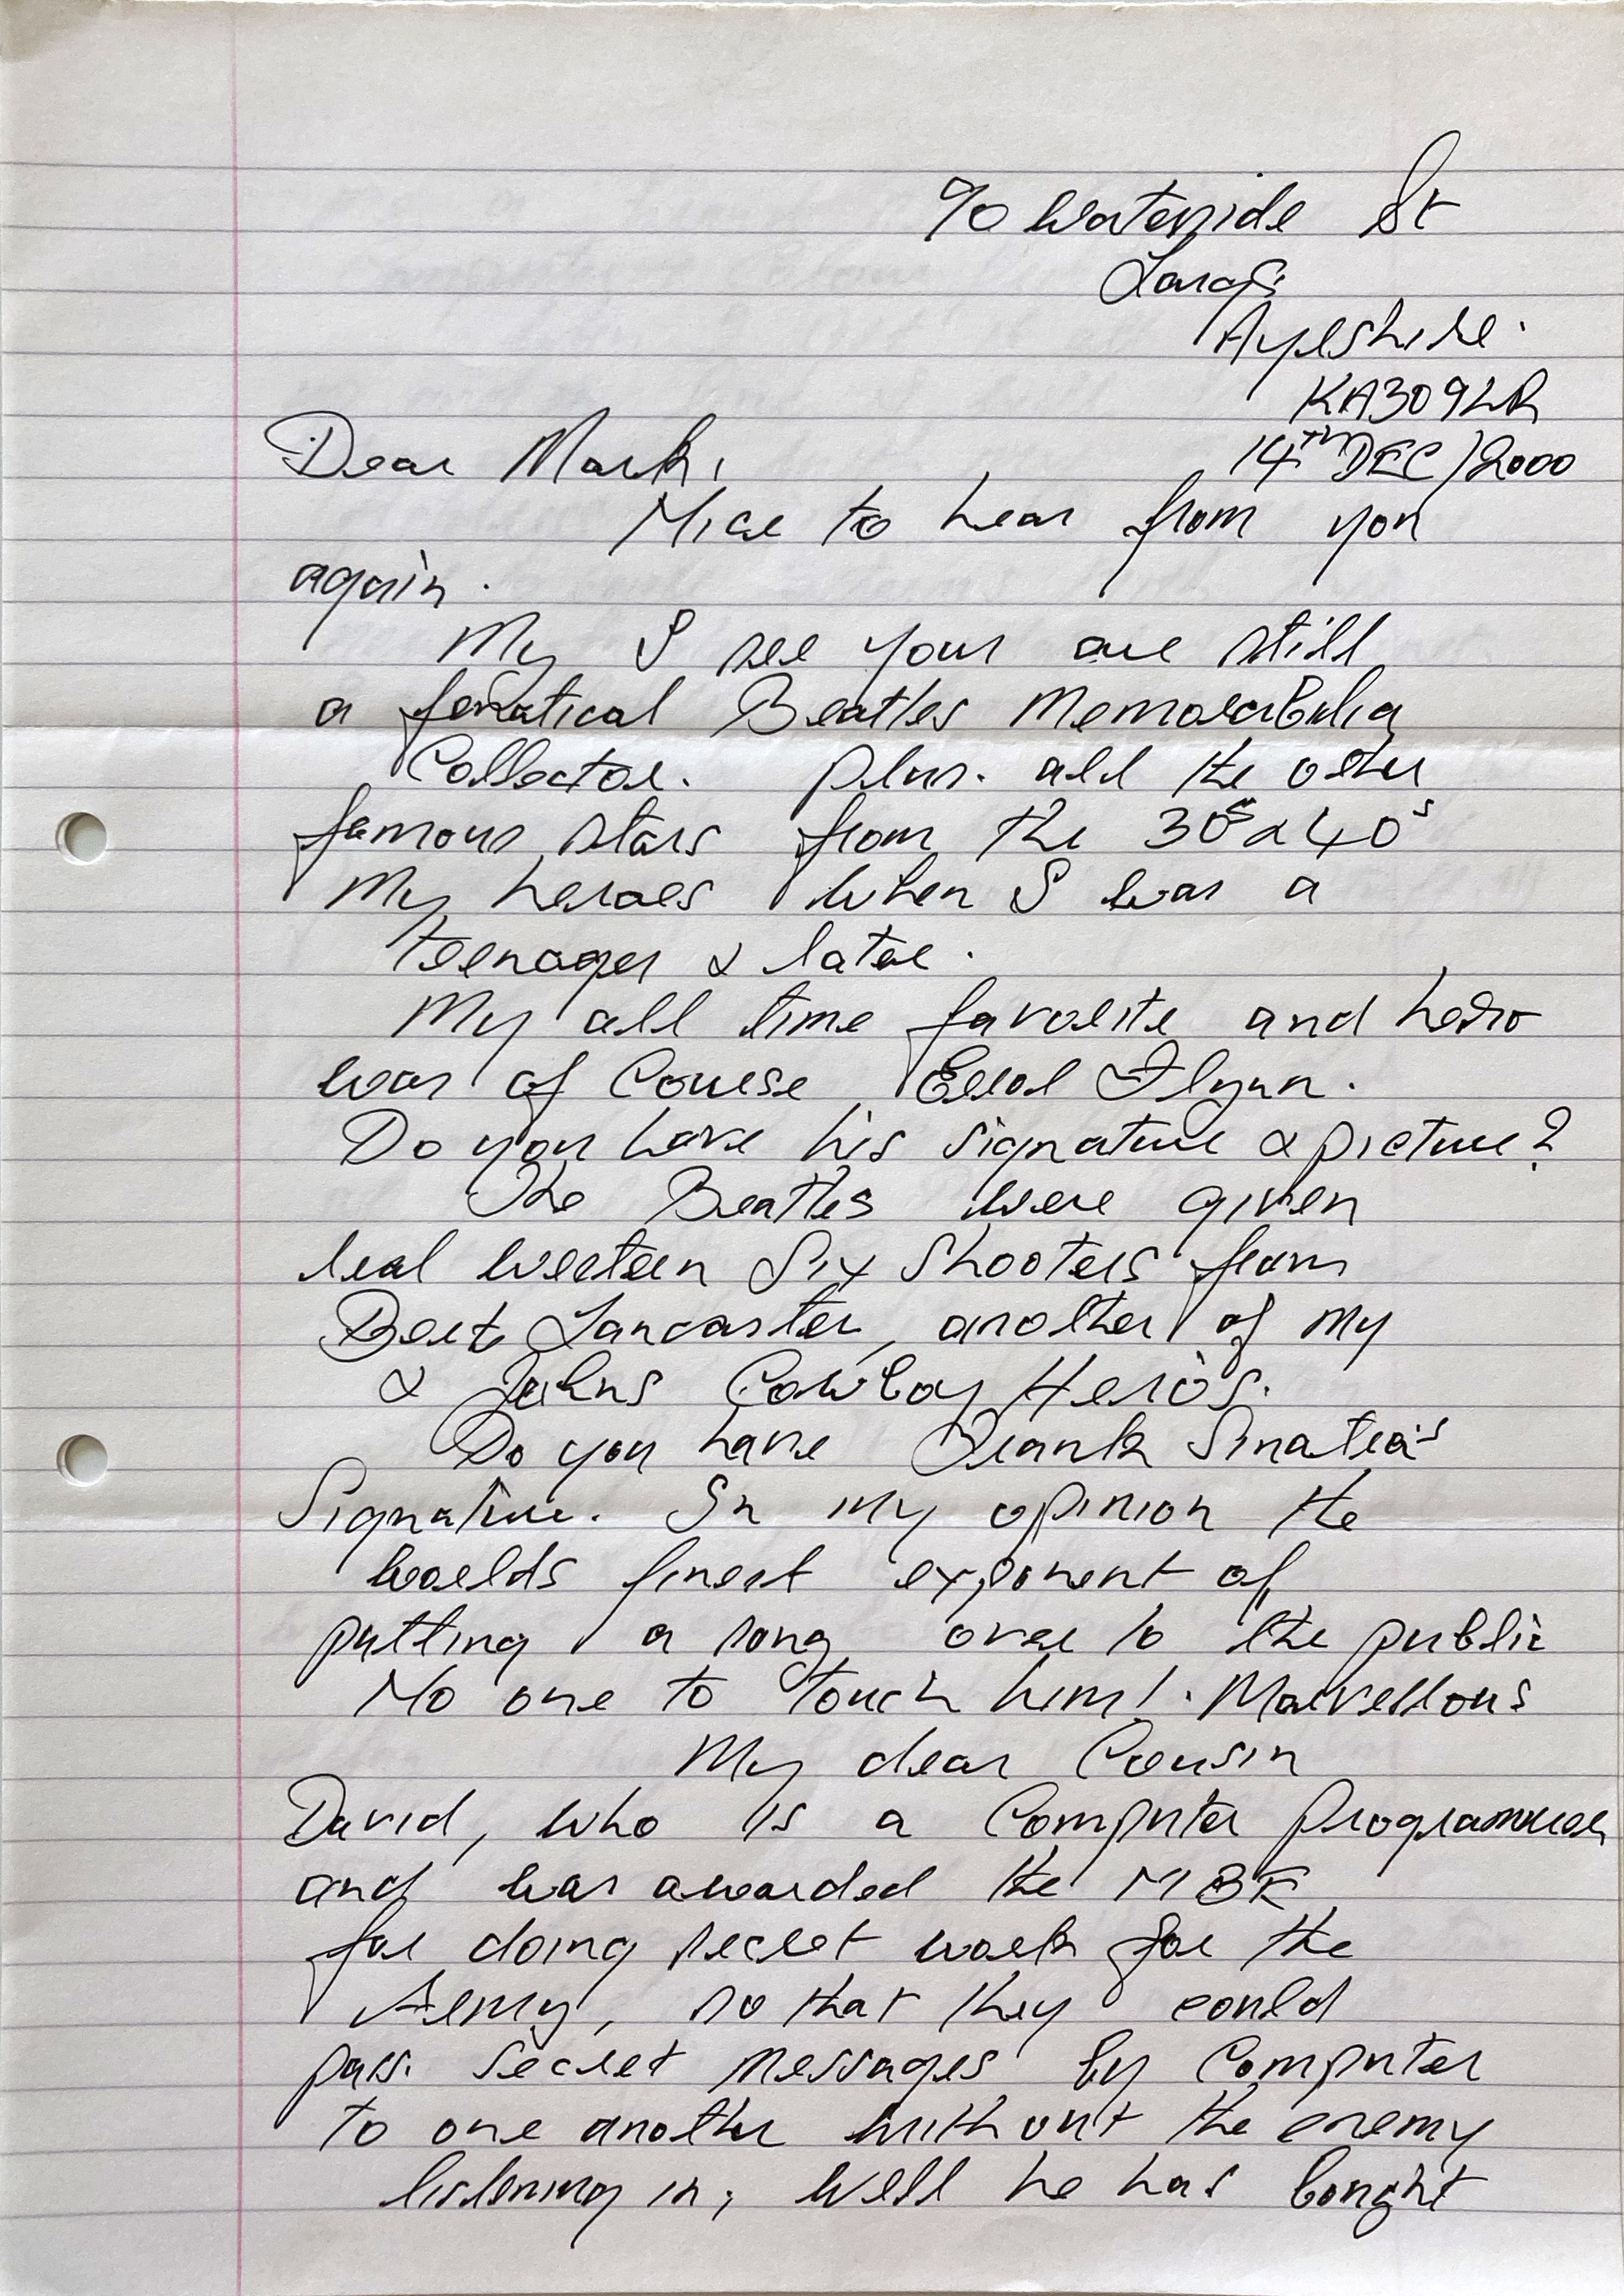 % Waterside St
Largs
Ayrshire.
KA309LR
14TH DEC/2000
Dear Mark,
Nice to hear from you
again.
My I see your are still
a fanatical Beatles Memorabilia
Collector. plus. all the other
famous stars from the 30s & 40s
My heroes when I was a
teenager & later.
My all time favorite and hero
was of Course Errol Flynn.
Do you have his signature & picture?
The Beatles were given
real western Six Shooters from
Bert Lancaster, another of my
& Johns Cowboy Hero's.
Do you have Frank Sinatra's
Signature. In my opinion the
worlds finest exponent of
putting a song over to the public
No one to touch him!. Marvellous
My dear Cousin
David, who is a Computer programmer
and was awarded the MBE
for doing secret work for the
Army, so that they could
pass secret messages by Computer
to one another without the enemy
listening in, well he has bought